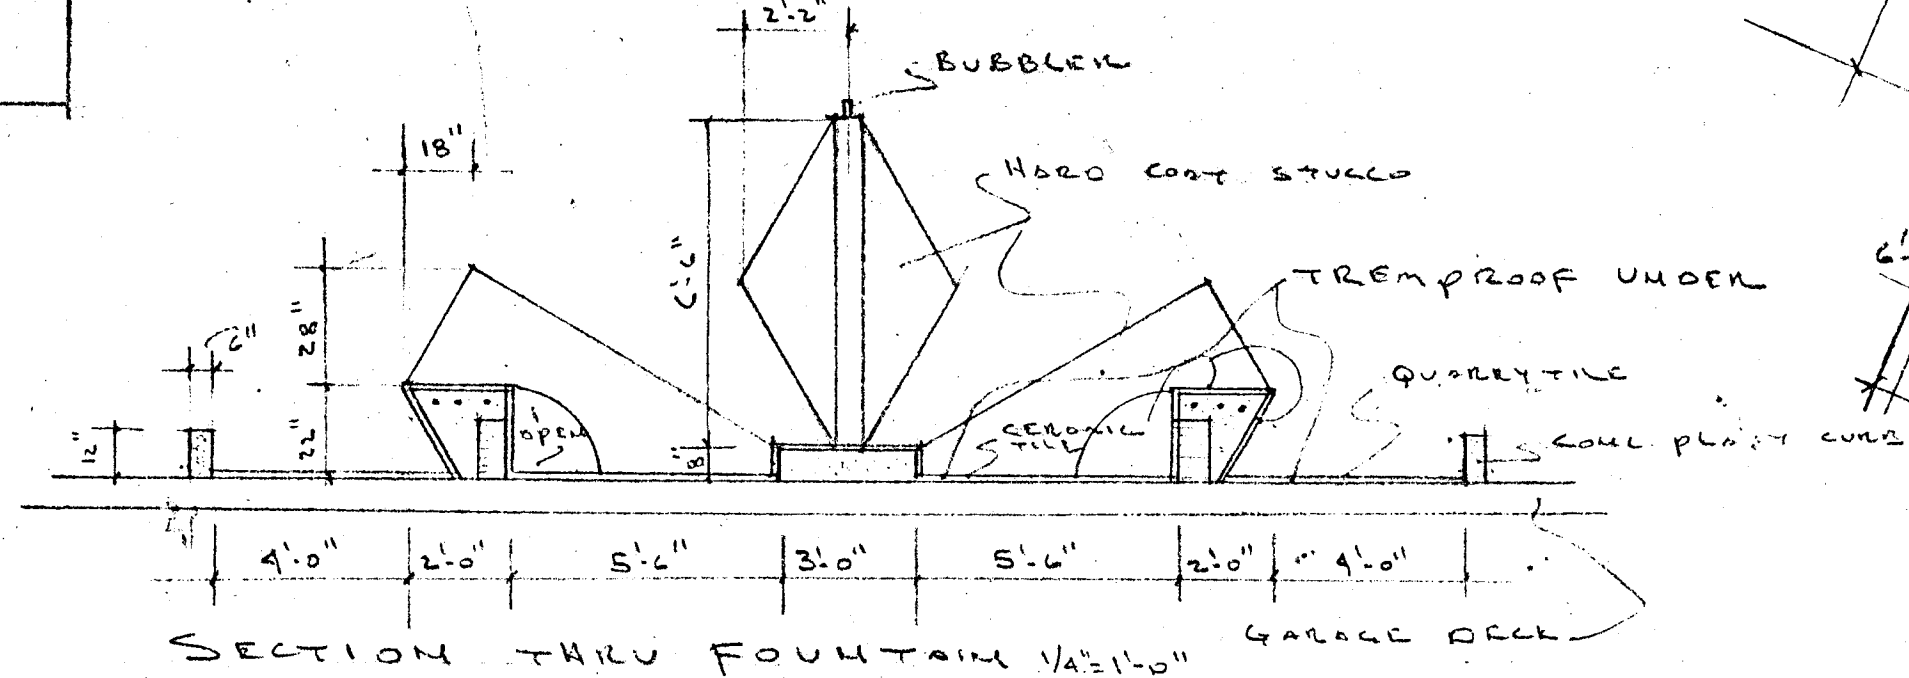 2'-2"
BUBBLER
18"
HARD COAT STUCCO
6'-6"
TREMPROOF UNDER
6"
28"
QUARRY TILE
22"
12"
OPEN
8"
CERAMIC
TILE
CONC PLAST CURB
4'-0" 2'-0" 5'-6" 3'-0" 5'-6" 2'-0" 4'-0"
GARAGE DECK
SECTION THRU FOUNTAIN 1/4"=1'-0"